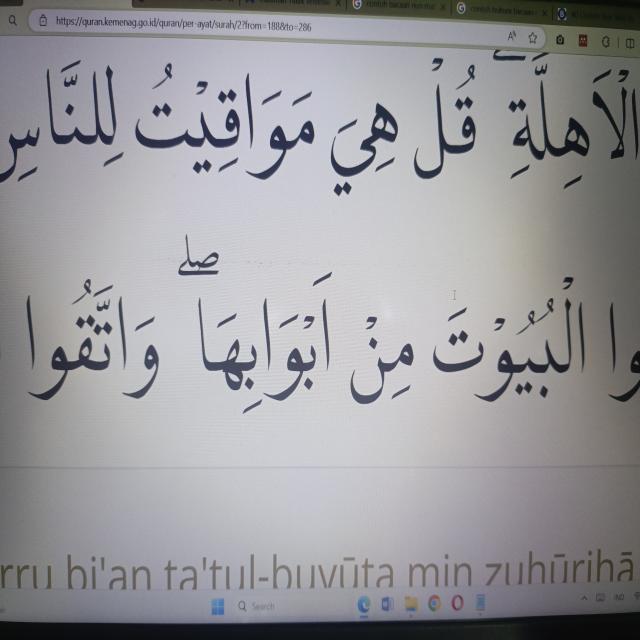 https://quran.kemenag.go.id/quran/per-ayat/surah/2?from=188&to=286
الْاَهِلَّةِ ۗ قُلْ هِيَ مَوَاقِيْتُ لِلنَّاسِ
وا الْبُيُوْتَ مِنْ اَبْوَابِهَا ۖ وَاتَّقُوا
rru bi'an ta'tul-buyūta min ẓuhūrihā
Search
IND